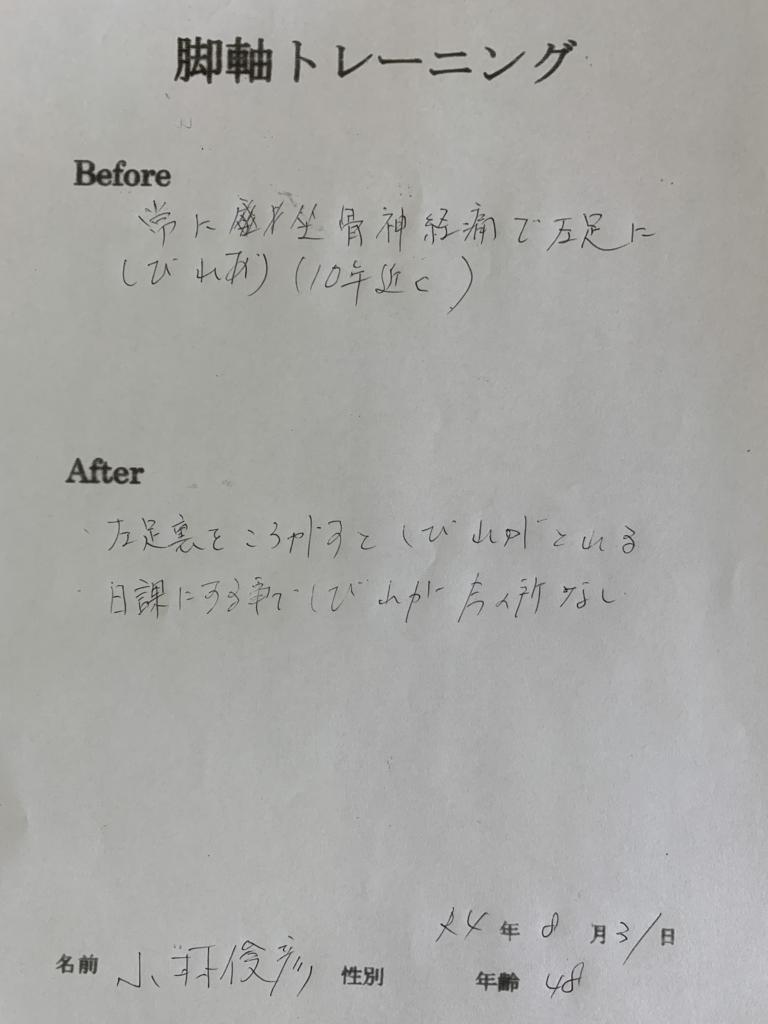 脚軸トレーニング
Before
常に 坐骨神経痛で左足に
しびれあり (10年近く)
After
・左足裏をころがすとしびれがとれる
・日課にする事でしびれが今の所なし
R4年 8月31日
名前 小林俊彦 性別 年齢 48